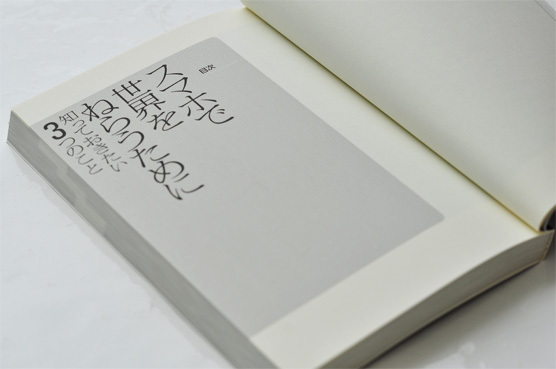 目次
スマホで
世界を
ねらうために
知っておきたい
3つのこと